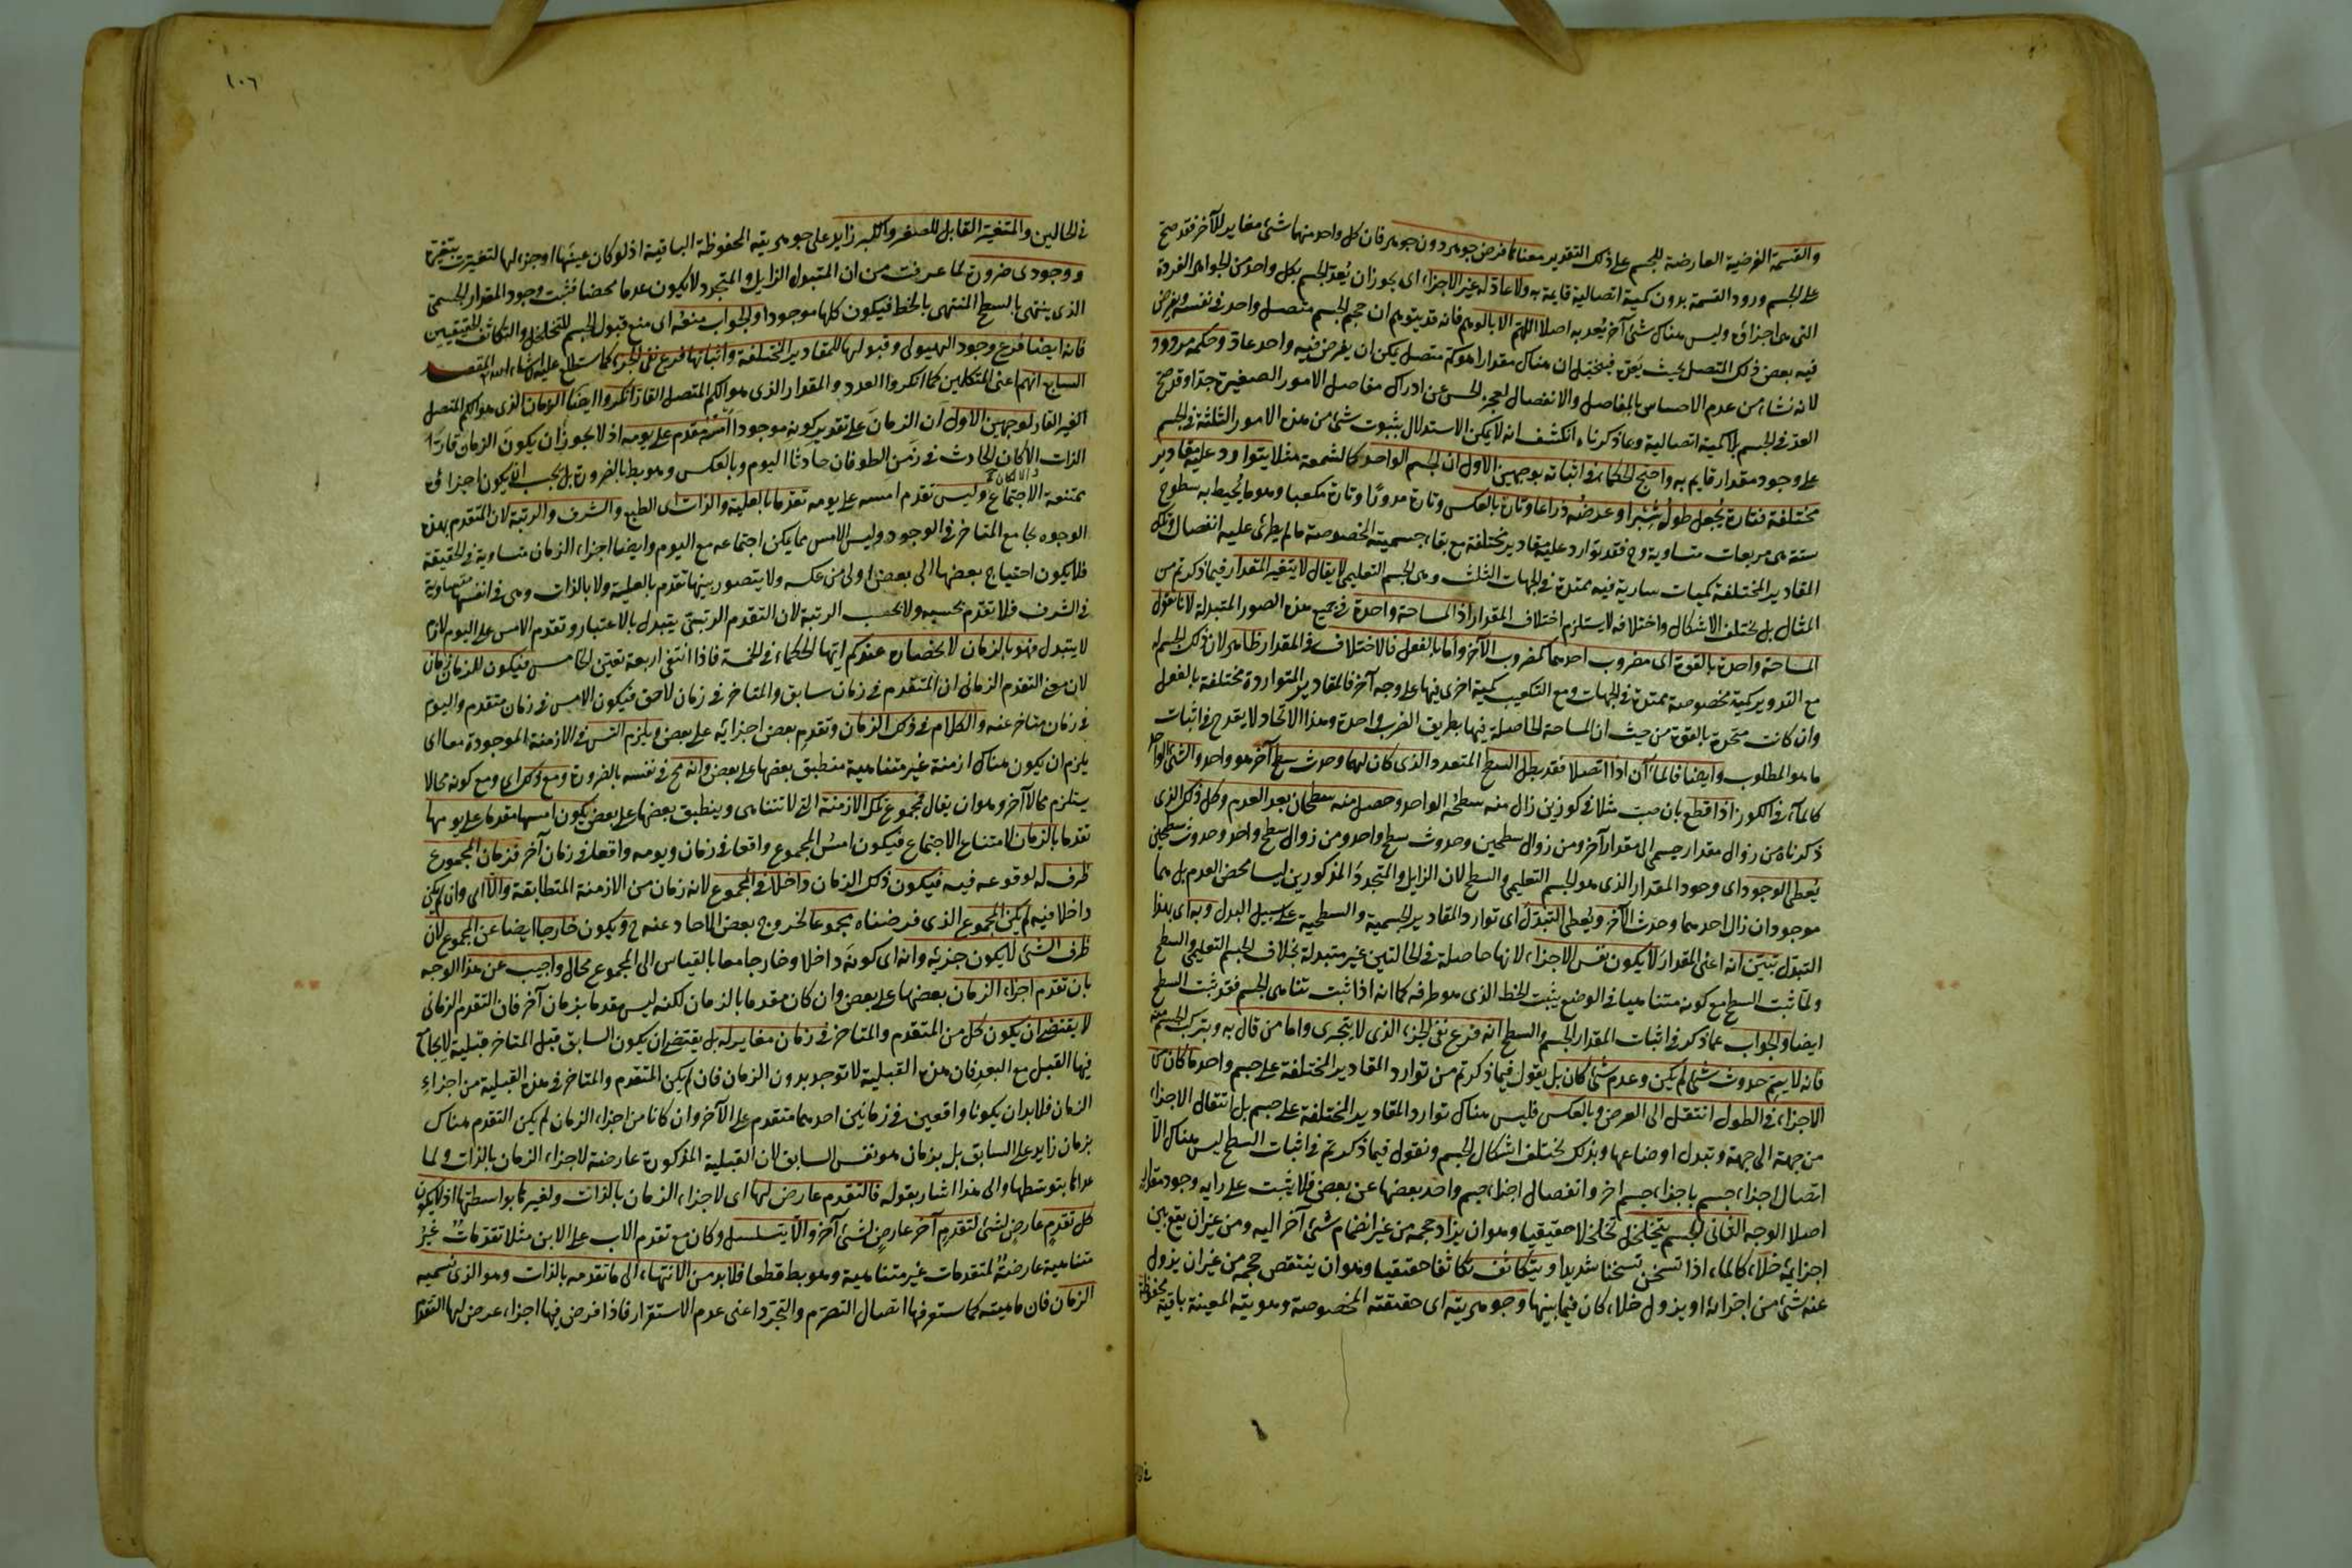 والقسمة الفرضية العارضة للجسم على ذلك التقدير معناها فرض جوهر دون جوهر فان كل واحد منهما شئ مغاير للآخر فقد صح
على الجسم ورود القسمة بدون كمية اتصالية قايمة به ولا عاد له غير الاجزاء اى يجوز ان يُعد الجسم بكل واحد من الجواهر الفردة
التى هى اجزاؤه وليس هناك شئ آخر يُعد به اصلا اللهم الا بالوهم فانه قد يتوهم ان حجم الجسم متصل واحد فى نفسه ويفرض
فيه بعض ذلك المتصل بحيث يَعدّه فيتخيل ان هناك مقدارا هو كم متصل يمكن ان يفرض فيه واحد عاد وحكمه مردود
لانه نشاء من عدم الاحساس بالمفاصل والانفصال لعجز الحس عن ادراك مفاصل الامور الصغيرة جدا وقد صح
العد فى الجسم بلا كمية اتصالية وبما ذكرناه انكشف انه لا يمكن الاستدلال بثبوت شئ من هذه الامور الثلثة فى الجسم
على وجود مقدار قايم به واحتج الحكماء فى اثباته بوجهين الاول ان الجسم الواحد كالشمعة مثلا يتوارد عليه مقادير
مختلفة فتارة يُجعل طوله شبرا وعرضه ذراعا وتارة بالعكس وتارة مدورًا وتارة مكعبا وهو ما يُحيط به سطوح
ستة هى مربعات متساوية وح فقد توارد عليه مقادير مختلفة مع بقاء جسميته المخصوصة ما لم يطرئ عليه انفصال وتلك
المقادير المختلفة كميات سارية فيه ممتدة فى الجهات الثلث وهى الجسم التعليمى لا يقال لا يتغير المقدار فيما ذكرتم من
المثال بل يختلف الاشكال واختلافه لا يستلزم اختلاف المقدار اذ المساحة واحدة فى جميع هذه الصور المتبدلة لانا نقول
المساحة واحدة بالقوة اى مضروب احدهما كمضروب الآخر واما بالفعل فالاختلاف فى المقدار ظاهر لان لذلك الجسم
مع التدوير كمية مخصوصة ممتدة فى الجهات ومع التكعيب كمية اخرى فيها على وجه آخر فالمقادير المتواردة مختلفة بالفعل
وان كانت متحدة بالقوة من حيث ان المساحة الحاصلة فيها بطريق الضرب واحدة وهذا الاتحاد لا يقدح فى اثبات
ما هو المطلوب وايضا فالماءآن اذا اتصلا فقد بطل السطح المتعدد الذى كان لهما وحدث سطح آخر هو واحد والشئ الواحد
كالماء فى الكوز اذا قطع بان صب مثلا فى كوزين زال منه سطحُه الواحد وحصل منه سطحان بعد العدم وكل ذلك الذى
ذكرناه من زوال مقدار جسمى الى مقدار آخر ومن زوال سطحين وحدوث سطح واحد ومن زوال سطح واحد وحدوث سطحين
يُعطى الوجود اى وجود المقدار الذى هو الجسم التعليمى والسطح لان الزايل والمتجددُ المذكورين ليسا محض العدم بل هما
موجودان زال احدهما وحدث الآخر ويُعطى التبدّل اى توارد المقادير الجسمية والسطحية على سبيل البدل وبه اى بهذا
التبدل تبيّن انه اعنى المقدار لا يكون نفس الاجزاء لانها حاصلة فى الحالتين غير متبدلة بخلاف الجسم التعليمى والسطح
ولمّا ثبت السطح مع كونه متناهيا فى الوضع يثبت الخط الذى هو طرفه كما انه اذا ثبت تناهى الجسم فقد ثبت السطح
ايضا والجواب عما ذكر فى اثبات المقدار الجسمى والسطح انه فرع نفى الجزء الذى لا يتجزى واما من قال به وبتركب الجسم منه
فانه لا يتم حدوث شئ لم يكن وعدم شئ كان بل يقول فيما ذكرتم من توارد المقادير المختلفة على جسم واحد ما كان من
الاجزاء فى الطول انتقل الى العرض وبالعكس فليس هناك توارد المقادير المختلفة على جسم بل انتقال الاجزاء
من جهة الى جهة وتبدل اوضاعها وبذلك يختلف اشكال الجسم ونقول فيما ذكرتم فى اثبات السطح ليس هناك الا
اتصال اجزاء جسم باجزاء جسم اخر وانفصال اجزاء جسم واحد بعضها عن بعض فلا يثبت على رايه وجود مقدار
اصلا الوجه الثانى الجسم يتخلخل تخلخلا حقيقيا وهو ان يزاد حجمه من غير انضمام شئ آخر اليه ومن غير ان يقع بين
اجزائه خلاء كالماء اذا تسخن تسخنا شديدا ويتكاثف تكاثفا حقيقيا وهو ان ينتقص حجمه من غير ان يزول
عنه شئ من اجزائه او يزول خلاء كان فيما بينها وجوهريته اى حقيقته المخصوصة وهويته المعينة باقية محفوظة
١٠٦
فى الحالين والمتغير القابل للصغر والكبر زايد على جوهريته المحفوظة الباقية اذ لو كان عينها او جزءا لها لتغيرت بتغيره
ووجودى ضرورة لما عرفت من ان المتبول الزايل والمتجدد لا يكون عدما محضا فثبت وجود المقدار الجسمى
الذى ينتهى بالسطح المنتهى بالخط فيكون كلها موجودا والجواب منعُه اى منع قبول الجسم للتخلخل والتكاثف الحقيقيين
فانه ايضا فرع وجود الهيولى وقبولها للمقادير المختلفة واثباتها فرع نفى الجزء كما ستطلع عليه ان شاء الله المقصد
السابع انهم اعنى المتكلمين كما انكروا العدد والمقدار الذى هو الكم المتصل القار انكروا ايضا الزمان الذى هو الكم المتصل
الغير القار لوجهين الاول ان الزمان على تقدير كونه موجودا امسُه مقدم على يومه اذ لا يجوز ان يكون الزمان قارّ
الذات والا لكان الحادث فى زمن الطوفان حادثا اليوم وبالعكس وهو بط بالضرورة بل يجب ان يكون اجزاؤه
ممتنعة الاجتماع وليس تقدم امسه على يومه تقدما بالعلية والذات اى الطبع والشرف والرتبة لان المتقدم بهذه
الوجوه يجامع المتاخر فى الوجود وليس الامس مما يمكن اجتماعه مع اليوم وايضا اجزاء الزمان متساوية فى الحقيقة
فلا يكون احتياج بعضها الى بعض اولى من عكسه ولا يتصور بينها تقدم بالعلية ولا بالذات وهى فى انفسها متساوية
فى الشرف فلا تقدّم بحسبه ولا بحسب الرتبة لان التقدم الرتبىّ يتبدل بالاعتبار وتقدم الامس على اليوم لازم
لا يتبدل فهو بالزمان لانحصاره عندكم ايها الحكماء فى الخمسة فاذا انتفى اربعة تعيّن الخامس فيكون للزمان زمان
لان معنى التقدم الزمانى ان المتقدم فى زمان سابق والمتاخر فى زمان لاحق فيكون الامس فى زمان متقدم واليوم
فى زمان متاخر عنه والكلام فى ذلك الزمان وتقدم بعض اجزائه على بعض ويلزم التس فى الازمنة الموجودة معا اى
يلزم ان يكون هناك ازمنة غير متناهية منطبق بعضها على بعض وانه مح فى نفسه بالضرورة ومع ذلك اى ومع كونه محالا
يستلزم محالا آخر وهو ان يقال مجموع تلك الازمنة التى لا تتناهى وينطبق بعضها على بعض يكون امسها مقدما على يومها
تقدما بالزمان لامتناع الاجتماع فيكون امسُ المجموع واقعا فى زمان ويومه واقعا فى زمان آخر فزمان المجموع
ظرف له لوقوعه فيه فيكون ذلك الزمان داخلا فى المجموع لانه زمان من الازمنة المتطابقة والا اى وان لم يكن
داخلا فيه لم يكن المجموع الذى فرضناه مجموعا لخروج بعض الاحاد عنه ح ويكون خارجا ايضا عن المجموع لان
ظرف الشئ لا يكون جزئه وانه اى كونه داخلا وخارجا معا بالقياس الى المجموع محال واجيب عن هذا الوجه
بان تقدم اجزاء الزمان بعضها على بعض وان كان مقدما بالزمان لكنه ليس مقدما بزمان آخر فان التقدم الزمانى
لا يقتضى ان يكون كل من المتقدم والمتاخر فى زمان مغاير له بل يقتضى ان يكون السابق قبل المتاخر قبلية لا يجامع
فيها القبل مع البعد فان هذه القبلية لا توجد بدون الزمان فان لم يكن المتقدم والمتاخر فى هذه القبلية من اجزاءِ
الزمان فلا بد ان يكونا واقعين فى زمانين احدهما متقدم على الآخر وان كانا من اجزاء الزمان لم يكن التقدم هناك
بزمان زايد على السابق بل بزمان هو نفس السابق لان القبلية المذكورة عارضة لاجزاء الزمان بالذات ولما
عداها بتوسّطها والى هذا اشار بقوله فالتقدم عارض لها اى لاجزاء الزمان بالذات ولغيرها بواسطتها اذ لا يكون
كل تقدمٍ عارضٍ لشئ لتقدمٍ آخر عارضٍ لشئ آخر والا يتسلسل وكان مع تقدم الاب على الابن مثلا تقدمات غيرُ
متناهية عارضةٌ لمتقدمات غير متناهية وهو بط قطعا فلا بد من الانتهاء الى ما تقدمه بالذات وهو الذى نسميه
الزمان فان ماهيته كما ستعرفها اتصال التصرّم والتجدّد اعنى عدم الاستقرار فاذا فرض فيها اجزاء عرض لها التقدم